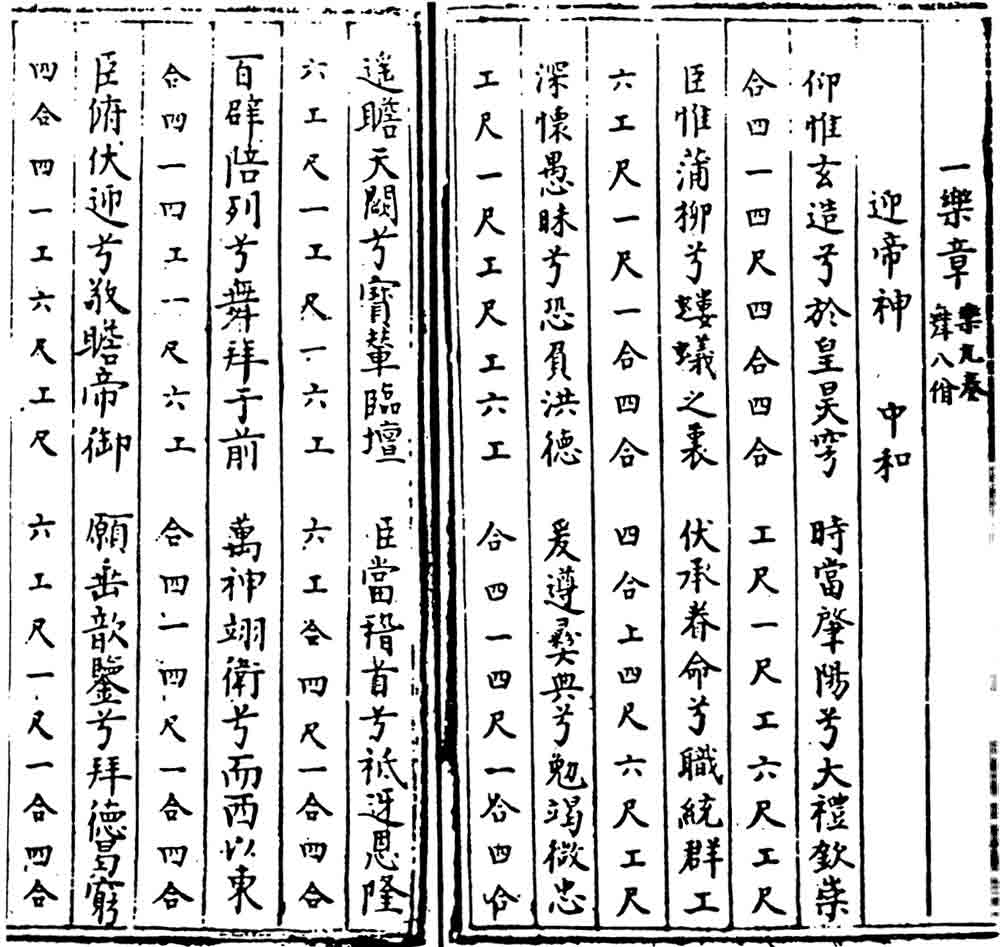 一樂章 樂九奏
舞八佾
迎帝神 中和
仰惟玄造兮於皇昊穹 時當肇陽兮大禮欽崇
合四一四尺四合四合 工尺一尺工六尺工尺
臣惟蒲柳兮螻蟻之衷 伏承眷命兮職統群工
六工尺一尺一合四合 四合上四尺六尺工尺
深懷愚昧兮恐負洪德 爰遵彝典兮勉竭微忠
工尺一尺工尺工六工 合四一四尺一合四合
遙瞻天闕兮寶輦臨壇 臣當稽首兮祗迓恩隆
六工尺一工尺一六工 六工合四尺一合四合
百辟陪列兮舞拜于前 萬神翊衛兮而西以東
合四一四工一尺六工 合四一四尺一合四合
臣俯伏迎兮敬瞻帝御 願垂歆鑒兮拜德曷窮
四合四一工六尺工尺 六工尺一尺一合四合